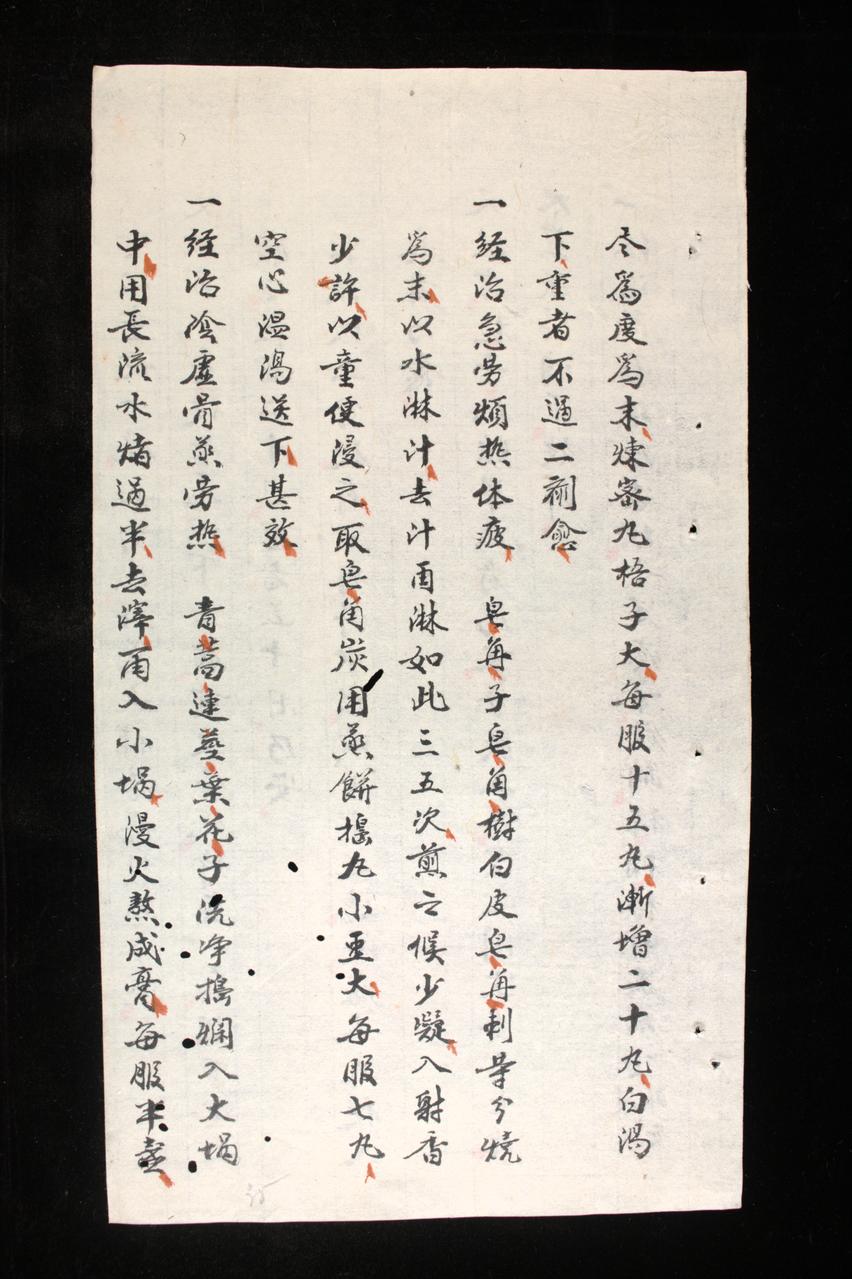 尽爲度爲末煉蜜丸梧子大每服十五丸漸增二十丸白湯
下重者不過二剂愈
一経治急労煩热体疲　皂角子皂角樹白皮皂角刺等分燒
爲末以水淋汁去汁再淋如此三五次煎之候少凝入射香
少許以童便浸之取皂角炭用蒸餅搗丸小豆大每服七丸
空心温湯送下甚效
一経治陰虛骨蒸労热　青蒿連莖葉花子洗净搗爛入大堝
中用長流水煮過半去滓再入小堝漫火熬成膏每服半盞